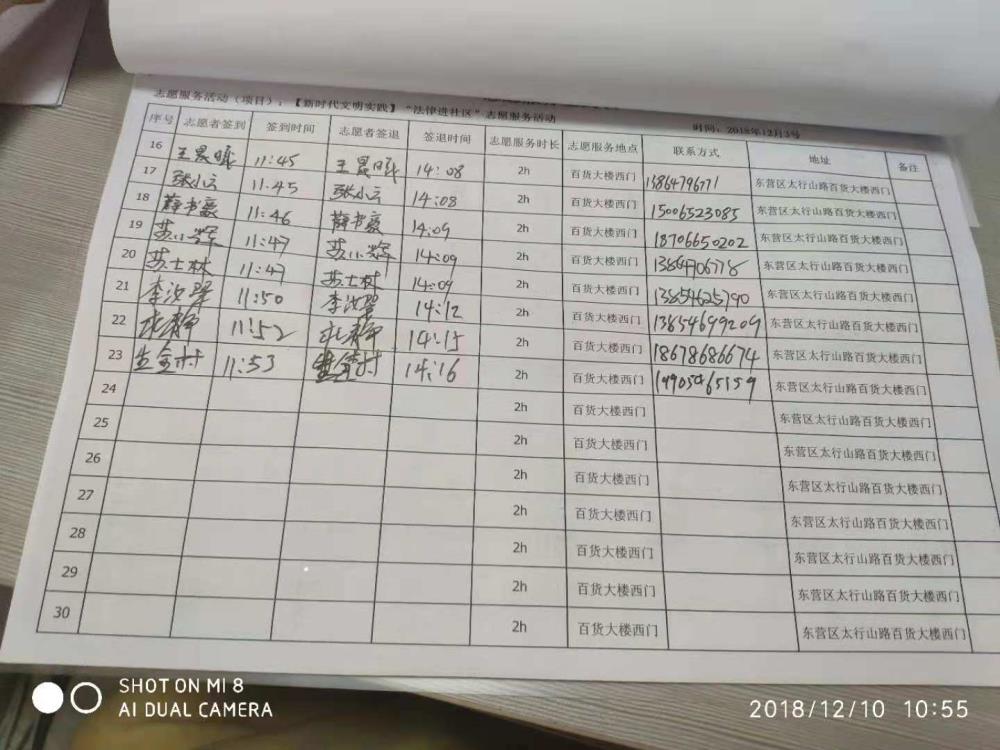 志愿服务活动（项目）：【新时代文明实践】“法律进社区”志愿服务活动 时间：2018年12月3号
序号 志愿者签到 签到时间 志愿者签退 签退时间 志愿服务时长 志愿服务地点 联系方式 地址 备注
16 11:45 14:08 2h 百货大楼西门 13864796771 东营区太行山路百货大楼西门
17 张小云 11:45 张小云 14:08 2h 百货大楼西门 15006523085 东营区太行山路百货大楼西门
18 薛书豪 11:46 薛书豪 14:09 2h 百货大楼西门 18706650202 东营区太行山路百货大楼西门
19 11:47 14:09 2h 百货大楼西门 东营区太行山路百货大楼西门
20 苏士林 11:47 苏士林 14:09 2h 百货大楼西门 13854625790 东营区太行山路百货大楼西门
21 李汝翠 11:50 李汝翠 14:12 2h 百货大楼西门 13854699209 东营区太行山路百货大楼西门
22 11:52 14:15 2h 百货大楼西门 18678686674 东营区太行山路百货大楼西门
23 11:53 14:16 2h 百货大楼西门 19905465159 东营区太行山路百货大楼西门
24 2h 百货大楼西门 东营区太行山路百货大楼西门
25 2h 百货大楼西门 东营区太行山路百货大楼西门
26 2h 百货大楼西门 东营区太行山路百货大楼西门
27 2h 百货大楼西门 东营区太行山路百货大楼西门
28 2h 百货大楼西门 东营区太行山路百货大楼西门
29 2h 百货大楼西门 东营区太行山路百货大楼西门
30 2h 百货大楼西门 东营区太行山路百货大楼西门
SHOT ON MI 8
AI DUAL CAMERA
2018/12/10 10:55